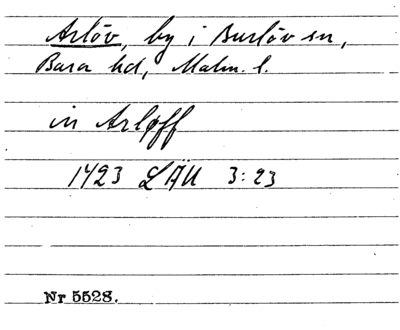 Arlöv, by i Burlöv sn,
Bara hd, Malm. l.
in Arløff
1423 LÄU 3:23
Nr 5528.